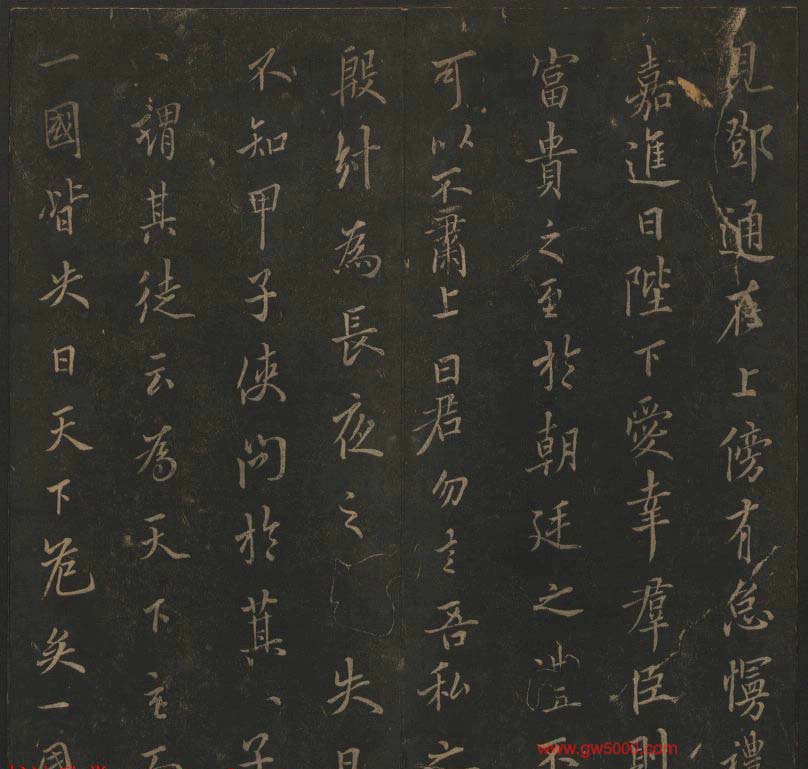 見鄧通在上傍有怠慢禮
嘉進曰陛下愛幸羣臣則
富貴之至於朝廷之 不
可以不肅上曰君勿言吾私之
殷紂為長夜之 失日
不知甲子使問於其子
謂其徒云為天下主而
一國皆失日天下危矣一國
www.gw5000.com